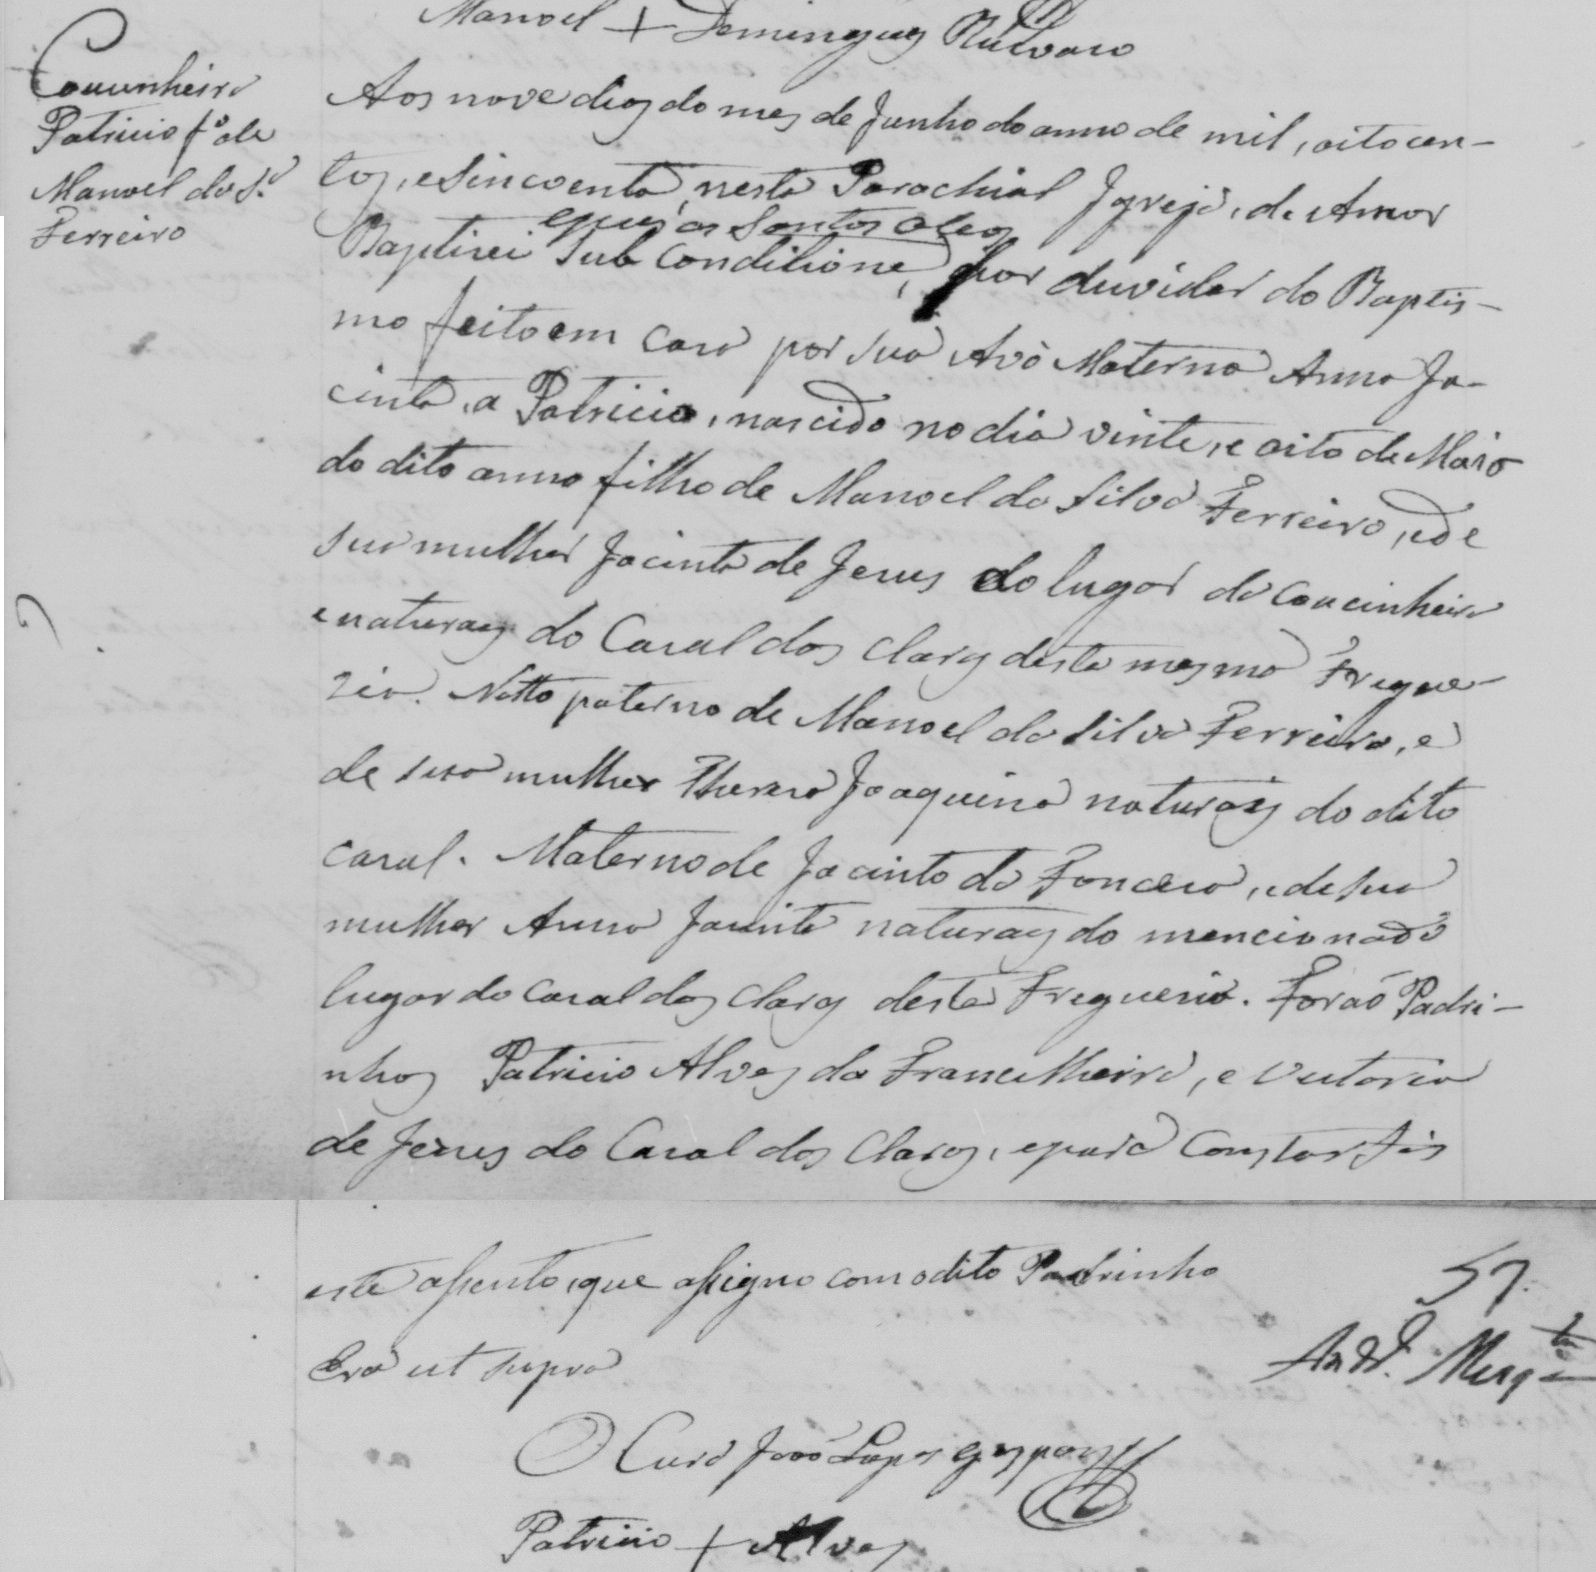 Manoel + Domingues
Couunheira
Patricio fº de
Manoel da Sª
Ferreira
Aos nove dias do mes de Junho do anno de mil, oitocen-
tos, e sincoenta, nesta Parochial Igreja, de Amor
e puz os Santos Oleos
Baptisei sub conditione, por duvidar do Baptis-
mo feito em casa por sua Avó Materna Anna Ja-
cinta, a Patricio, nascido no dia vinte, e oito de Maio
do dito anno filho de Manoel da Silva Ferreira, e de
sua mulher Jacinta de Jesus do lugar da Coucinheira
e naturaes do Casal dos Claros desta mesma Fregue-
zia. Netto paterno de Manoel da Silva Ferreira, e
de sua mulher Thereza Joaquina naturaes do dito
casal. Materno de Jacinto da Fonceca, e de sua
mulher Anna Jacinta naturaes do mencionado
lugar do Casal dos Claros desta Freguesia. Forão Padri-
nhos Patricio Alves da Franculheira, e Victoria
de Jesus do Casal dos Claros, e para constar fis
este assento, que assigno com o dito Padrinho
57.
Era ut supra
O Cura João Lopes Gaspar
Patricio + Alves